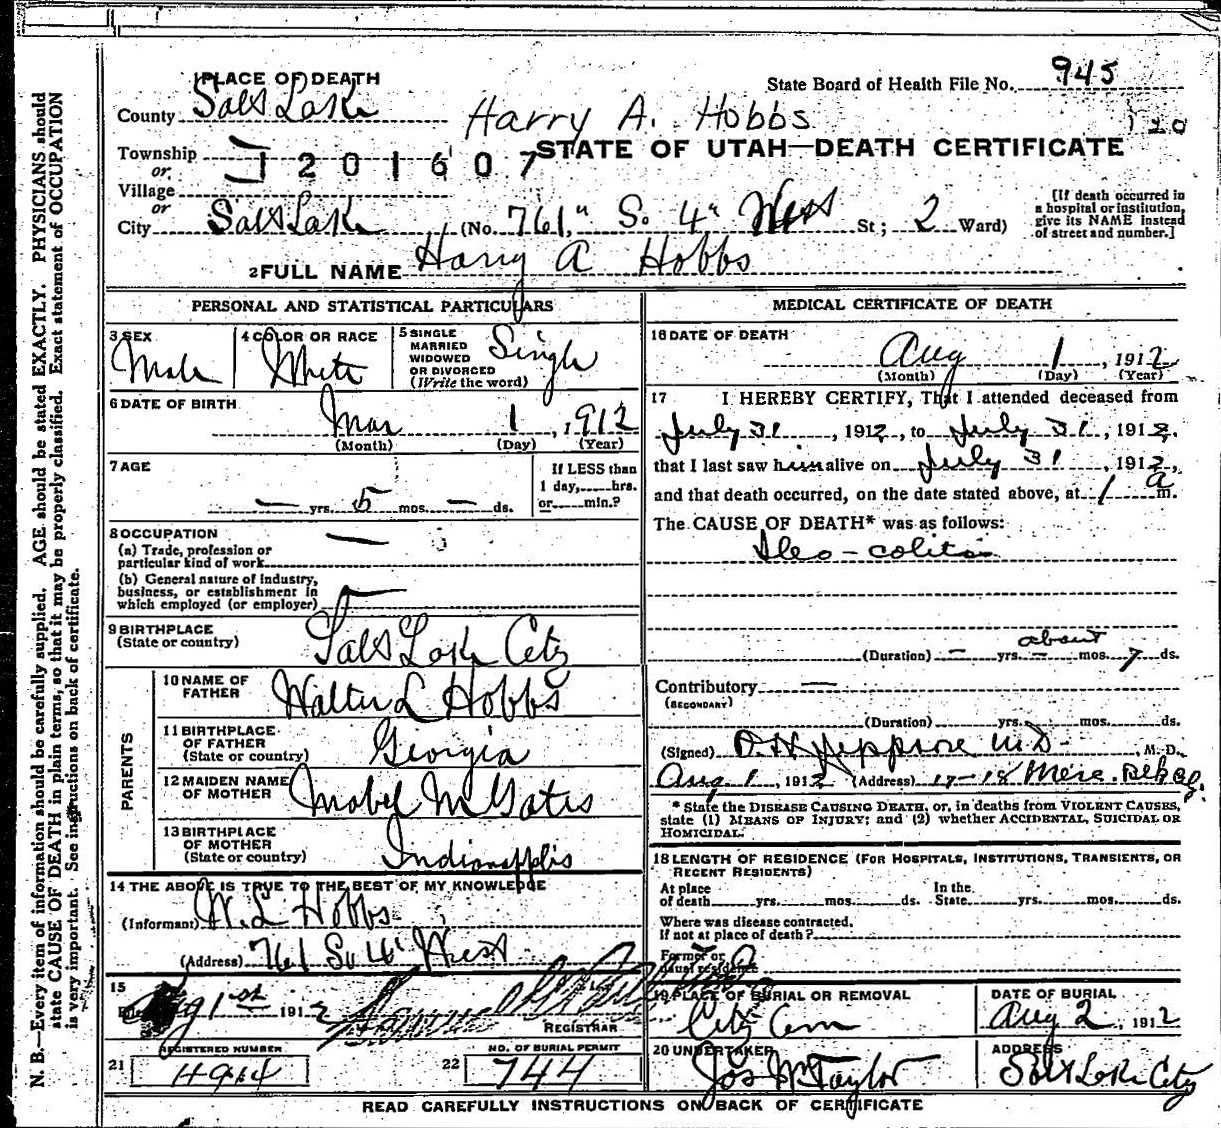 1 PLACE OF DEATH
State Board of Health File No. 945
County Salt Lake
Harry A. Hobbs
120
Township 1201607
or
STATE OF UTAH—DEATH CERTIFICATE
Village
or
City Salt Lake (No. 761 So. 4" West St; 2 Ward)
[If death occurred in a hospital or institution, give its NAME instead of street and number.]
2 FULL NAME Harry A Hobbs
PERSONAL AND STATISTICAL PARTICULARS
3 SEX
Male
4 COLOR OR RACE
White
5 SINGLE MARRIED WIDOWED OR DIVORCED (Write the word)
Single
6 DATE OF BIRTH
Mar 1, 1912
(Month) (Day) (Year)
7 AGE
— yrs. 5 mos. — ds.
If LESS than 1 day, hrs. or min.?
8 OCCUPATION
(a) Trade, profession or particular kind of work —
(b) General nature of industry, business, or establishment in which employed (or employer) —
9 BIRTHPLACE
(State or country) Salt Lake City
PARENTS
10 NAME OF FATHER Walter L Hobbs
11 BIRTHPLACE OF FATHER (State or country) Georgia
12 MAIDEN NAME OF MOTHER Mabel M Yates
13 BIRTHPLACE OF MOTHER (State or country) Indianapolis
14 THE ABOVE IS TRUE TO THE BEST OF MY KNOWLEDGE
(Informant) W. L Hobbs
(Address) 761 So 4" West
15
Aug 1st 1912
REGISTRAR
21 REGISTERED NUMBER
22 NO. OF BURIAL PERMIT
744
MEDICAL CERTIFICATE OF DEATH
16 DATE OF DEATH
Aug 1, 1912
(Month) (Day) (Year)
17 I HEREBY CERTIFY, That I attended deceased from
July 31, 1912, to July 31, 1912,
that I last saw him alive on July 31, 1912,
and that death occurred, on the date stated above, at 1 a m.
The CAUSE OF DEATH* was as follows:
Ileo-colitis
about
(Duration) — yrs. — mos. 7 ds.
Contributory —
(SECONDARY)
(Duration) yrs. mos. ds.
(Signed) M.D. , M. D.
Aug 1, 1912 (Address) 17-18 Merc. Blk
* State the DISEASE CAUSING DEATH, or, in deaths from VIOLENT CAUSES, state (1) MEANS OF INJURY; and (2) whether ACCIDENTAL, SUICIDAL OR HOMICIDAL.
18 LENGTH OF RESIDENCE (FOR HOSPITALS, INSTITUTIONS, TRANSIENTS, OR RECENT RESIDENTS)
At place of death yrs. mos. ds. In the State yrs. mos. ds.
Where was disease contracted. If not at place of death?
Former or usual residence
19 PLACE OF BURIAL OR REMOVAL
City Cem
DATE OF BURIAL
Aug 2, 1912
20 UNDERTAKER
Jos Wm Taylor
ADDRESS
Salt Lake City
READ CAREFULLY INSTRUCTIONS ON BACK OF CERTIFICATE
N. B.—Every item of information should be carefully supplied. AGE should be stated EXACTLY. PHYSICIANS should
state CAUSE OF DEATH in plain terms, so that it may be properly classified. Exact statement of OCCUPATION
is very important. See instructions on back of certificate.